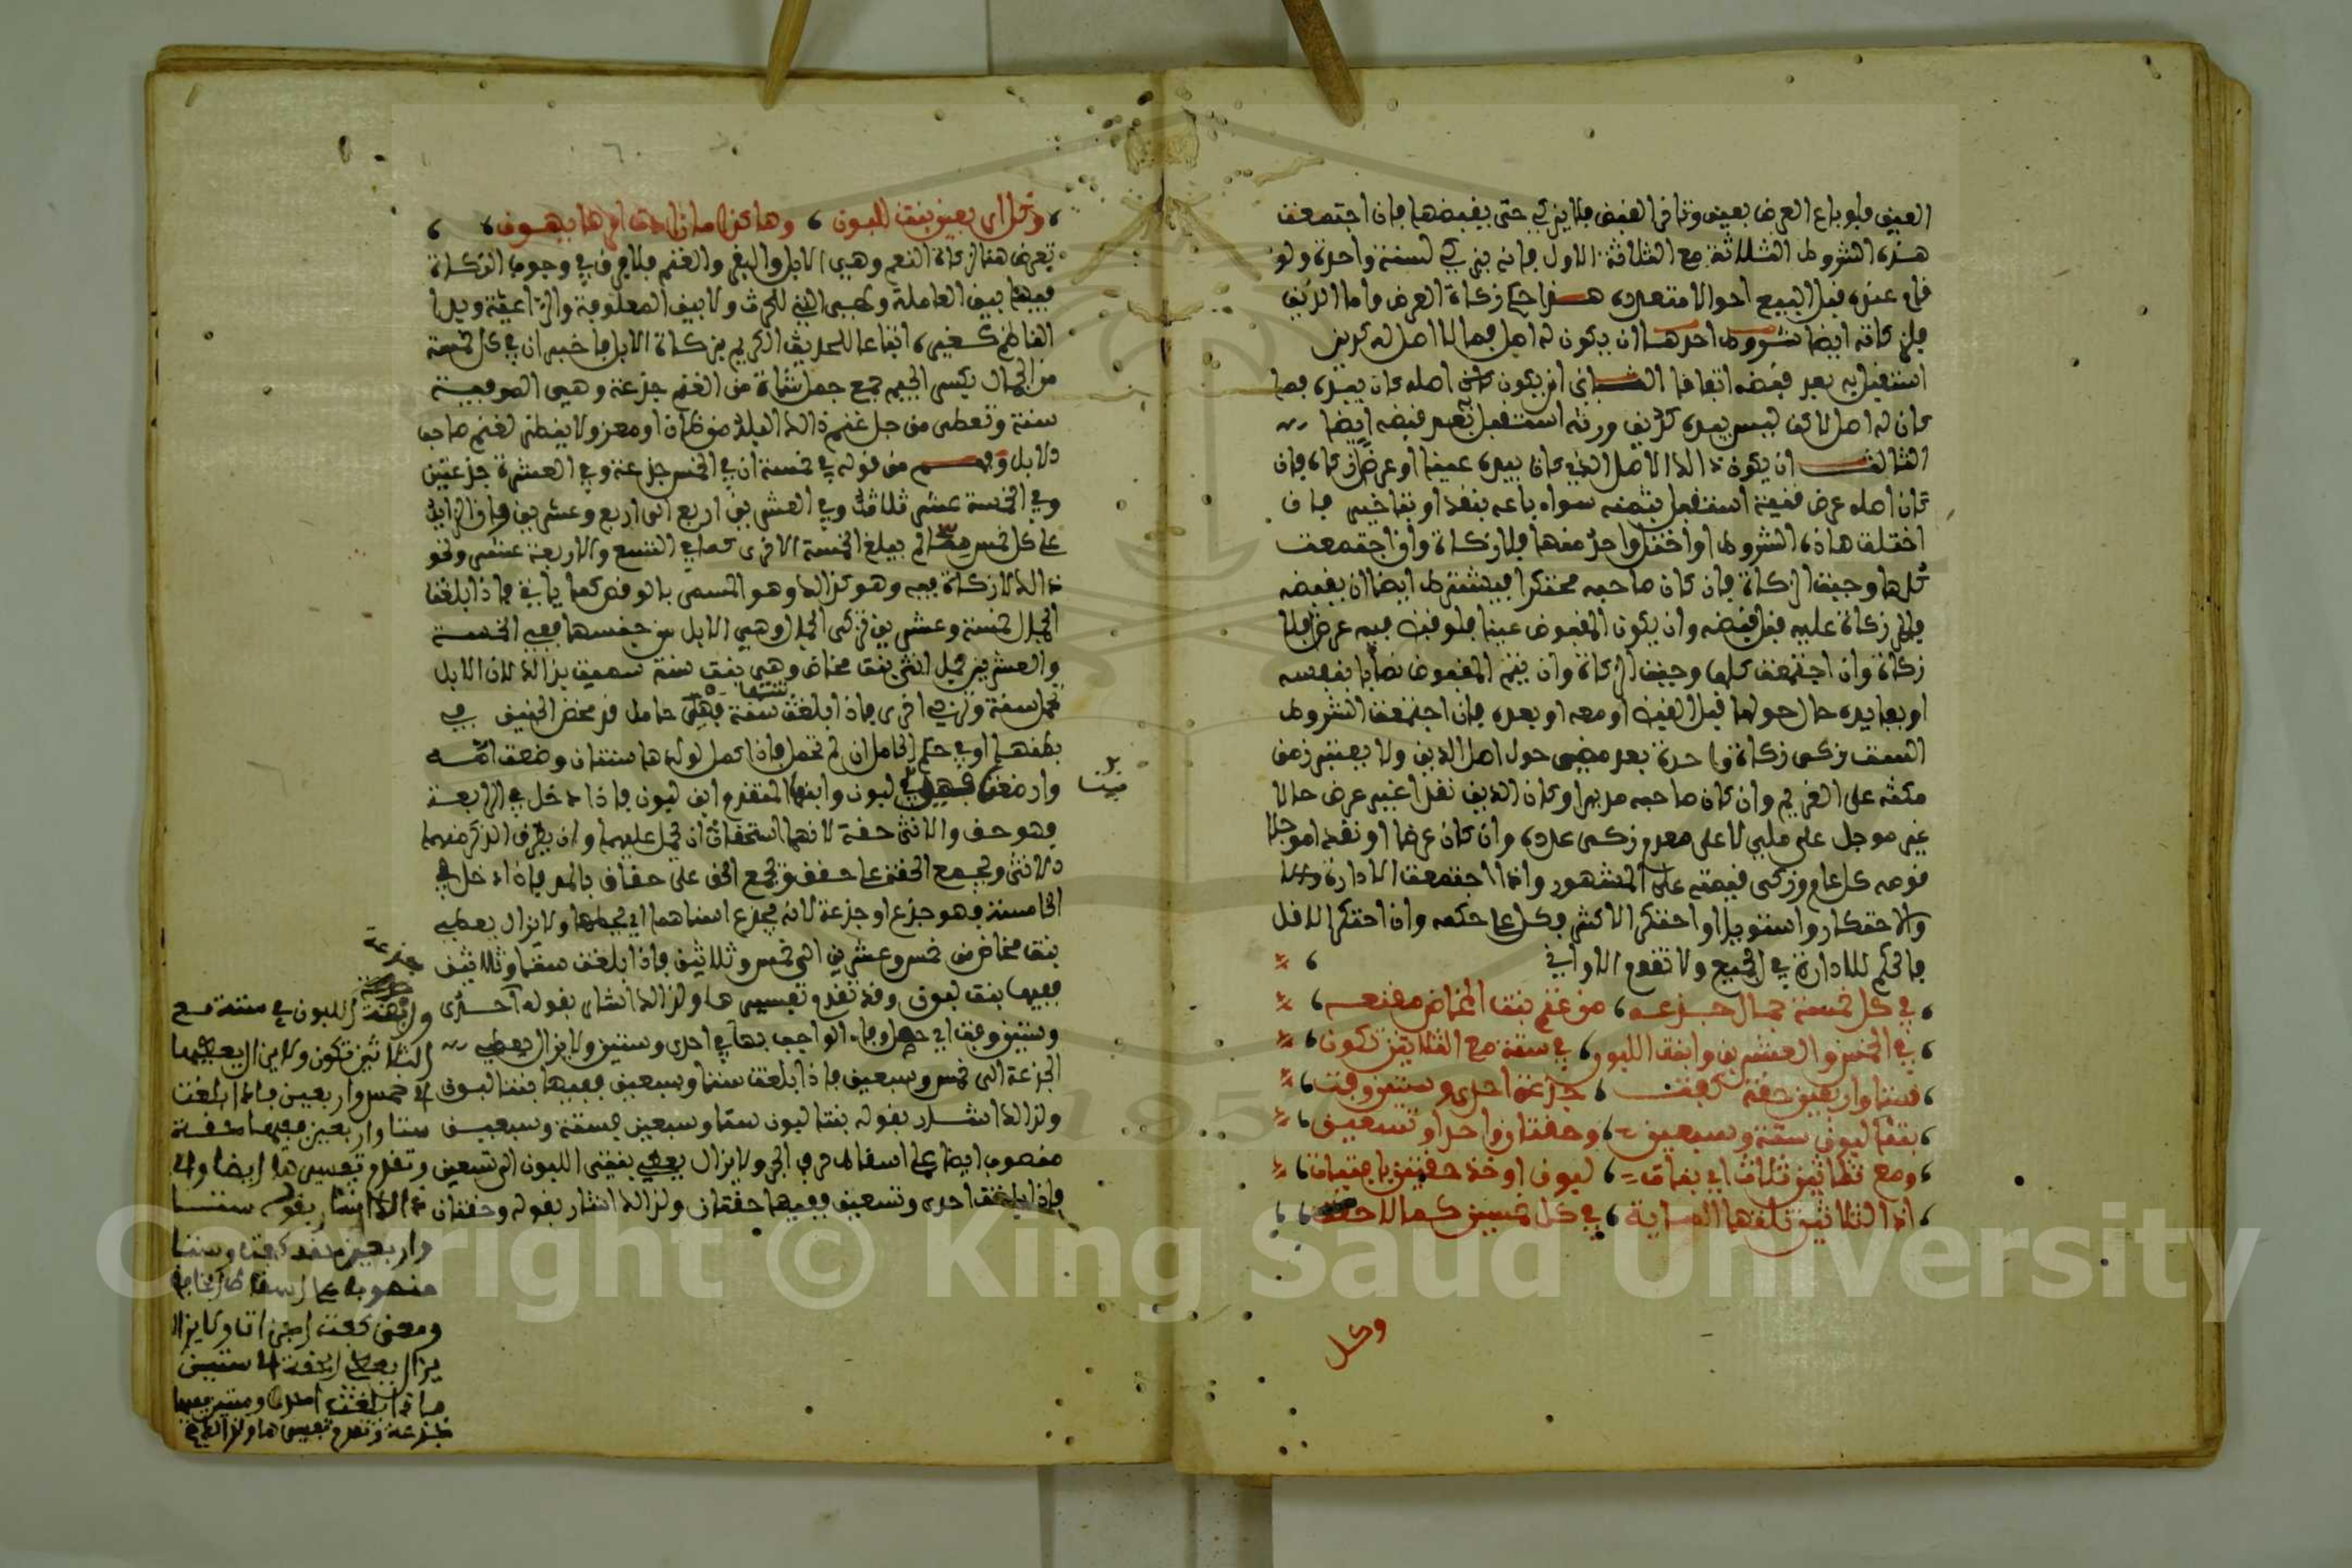 العين فلو باع العرض بعين وتاخر القبض فلا يزكي حتى يقبضها فان اجتمعت
هذه الشروط الثلاثة مع الثلاثة الاول فانه يزكي لسنة واحدة ولو
قام عنده قبل البيع احوالا متعددة هذا حكم زكاة العرض واما الدين
فلزكاته ايضا شروط احدها ان يكون له اصل فما لا اصل له
استقبل به بعد قبضه اتفاقا الثاني ان يكون اصله كان بيده فما
كان له اصل لاكن ليس بيده كدين ورثه استقبل به بعد قبضه ايضا
الثالث ان يكون ذالك الاصل الذي كان بيده عينا او عرض زكاة فان
كان اصله عرض قنية استقبل بثمنه سواء باعه بنقد او بتاخير فان
اختلت هاذه الشروط او اختل واحد منها فلا زكاة وان اجتمعت
كلها وجبت الزكاة فان كان صاحبه محتكرا فيشترط ايضا ان يقبضه
فلا زكاة عليه قبل قبضه وان يكون المقبوض عينا فلو قبض فيه عرضا فلا
زكاة وان اجتمعت كلها وجبت الزكاة وان يتم المقبوض نصابا بنفسه
او بفايدة حال حولها قبل القبض او معه او بعده فان اجتمعت الشروط
الست زكى زكاة واحدة بعد مضي حول اصل الدين ولا يعتبر زمن
مكثه على الغريم وان كان صاحبه مديرا وكان الدين نقدا غير عرض حالا
غير موجل على ملي لا على معدم زكى عدده وان كان عرضا او نقدا موجلا
قومه كل عام وزكى قيمته على المشهور واذا اجتمعت الادارة
والاحتكار واستويا او احتكر الاكثر فكل على حكمه وان احتكر الاقل
فالحكم للادارة في الجميع ولا تقوم الاواني
في كل خمسة جمال جذعه من غنم بنت المخاض مقنعه
في الخمس والعشرين وابنة اللبون في ستة مع الثلاثين تكون
ستا واربعين حقة كفت جذعة احدى وستين وفت
بنتا لبون ستة وسبعين وحقتان واحدا وتسعين
ومع ثلاثين ثلاث اي بنات لبون او خذ حقتين بافتيات
اذا الثلاثين تلتها المائة في كل خمسين كمالا حقة
وكل
وكل اربعين بنت للبون وهاكذا ما زادت امرها يهون
تعرض هنا لزكاة النعم وهي الابل والبقر والغنم فلا فرق في وجوب الزكاة
فيها بين العاملة وهي التي للحرث ولا بين المعلوفة والراعية وبدا
الناظم كغيره اتباعا للحديث الكريم بزكاة الابل فاخبر ان في كل خمسة
من الجمال بكسر الجيم جمع جمل شاة من الغنم جذعة وهي الموفية
سنة وتعطى من جل غنم ذالك البلد من ضان او معز ولا ينظر لغنم صاحب
الابل وفهم من قوله في خمسة ان في الخمس جذعة وفي العشرة جذعتين
وفي الخمسة عشر ثلاث وفي العشرين اربع الى اربع وعشرين وان الزايد
على كل خمس مما لم يبلغ الخمسة الاخرى كما في التسع والاربعة عشر ونحو
ذالك لا زكاة فيه وهو كذالك وهو المسمى بالوقص كما ياتي فاذا بلغت
الجمال خمسة وعشرين زكى الجمال وهي الابل من جنسها ففي الخمسة
والعشرين جمل انثى بنت مخاض وهي بنت سنة سميت بذالك لان الابل
تحمل سنة وتربي اخرى فاذا بلغت سنة فهي حامل قد مخض الجنين في
بطنها او في حكم الحامل ان لم تحمل فاذا كمل لولدها سنتان وضعت امه
وارضعت فهي لبون وابنها المتقدم ابن لبون فاذا دخل في الرابعة
فهو حق والانثى حقة لانهما استحقا ان يحمل عليهما وان يطرق الذكر منهما
الانثى وتجمع الحقة على حقق وتجمع الحق على حقاق بالمد فاذا دخل في
الخامسة فهو جذع او جذعة لانه يجذع اسنانهما اي يحطها ولا يزال يعطي
بنت مخاض من خمس وعشرين الى خمس وثلاثين فاذا بلغت ستا وثلاثين
ففيها بنت لبون وقد تقدم تفسيرها ولذالك اشار بقوله احدى
وستين وفت اي الواجب بها في احدى وستين ولا يزال يعطي
الجذعة الى خمس وسبعين فاذا بلغت ستا وسبعين ففيها بنتا لبون
ولذالك اشار بقوله بنتا لبون ستا وسبعين فستة وسبعين
منصوب ايضا على اسقاط حرف الجر ولا يزال يعطي بنتي اللبون الى تسعين
فاذا بلغت احدى وتسعين ففيها حقتان ولذالك اشار بقوله وحقتان
جذعة
وابنة اللبون في ستة مع
الثلاثين تكون ولا يزال يعطيها
الى خمس واربعين فاذا بلغت
ستا واربعين ففيها حقة
وتقدم تفسيرها ايضا والى
ذالك اشار بقوله ستا
واربعين حقة كفت وستا
منصوب على اسقاط الخافض
ومعنى كفت اجزات ولا يزال
يزال يعطي الحقة الى ستين
فاذا بلغت احدى وستين ففيها
جذعة وتقدم تفسيرها
Copyright © King Saud University
1957